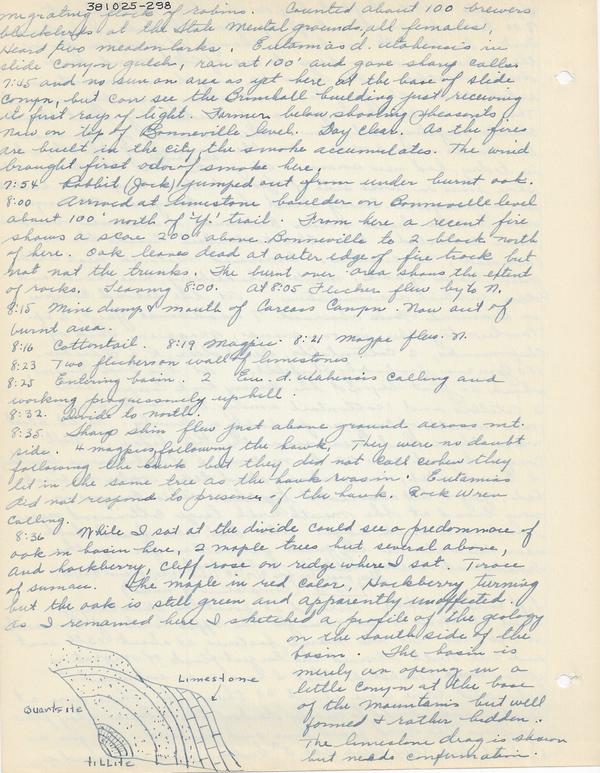 381025-298
migrating flock of robins. Counted about 100 brewers
blackbirds at the State Mental grounds, all females,
Heard two meadowlarks. Eutamias d. utahensis in
slide canyon gulch, ran at 100' and gave sharp calls.
7:45 and no sun on area as yet here at the base of slide
Canyn, but can see the Brimhall building just receiving
its first rays of light. Farmer below shooting pheasants.
Now on top of Bonneville level. Day clear. As the fires
are built in the city the smoke accumulates. The wind
brought first odor of smoke here.
7:54 Rabbit (Jack) jumped out from under burnt oak.
8:00 Arrived at limestone boulder on Bonneville level
about 100' north of "Y" trail. From here a recent fire
shows a scar 200' above Bonneville to 2 block north
of here. Oak leaves dead at outer edge of fire track but
not the trunks. The burnt over area shows the extent
of rocks. Leaving 8:00. At 8:05 Flicker flew by to N.
8:15 Mine dump & mouth of Carcass Canyn. Now out of
burnt area.
8:16 Cottontail. 8:19 Magpie. 8:21 Magpe flew. N.
8:23 Two flickers on wall of limestones
8:25 Entering basin. 2 Eu. d. utahensis calling and
working progressively up hill.
8:32. Divide to north.
8:35 Sharp shin flew just above ground across mt.
side. 4 magpies following the hawk. They were no doubt
following the hawk but they did not call when they
lit in the same tree as the hawk was in. Eutamias
did not respond to presence of the hawk. Rock Wren
calling.
8:36 While I sat at the divide could see a predominace of
oak in basin here, 2 maple trees but several above,
and hackberry, Cliff rose on ridge where I sat. Trace
of sumac. The maple in red color, Hackberry turning
but the oak is still green and apparently unaffected.
As I remained here I sketched a profile of the geology
on the south side of the
basin. The basin is
merely an opening in a
little canyn at the base
of the mountains but well
formed & rather hidden.
The limestone drag is shown
but needs confirmation.
Limestone
Quartsite
tillite